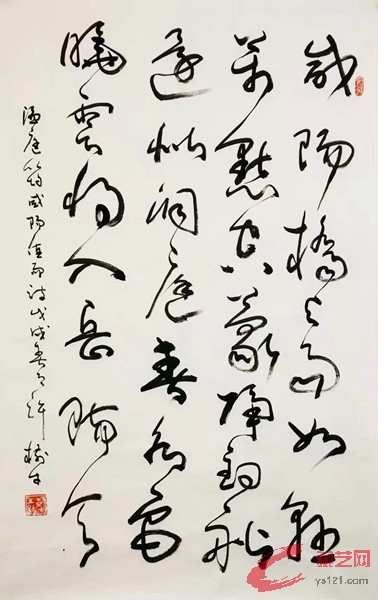 咸陽橋上雨如懸
萬點空濛隔釣船
還似洞庭春水色
曉雲將入岳陽天
溫庭筠咸陽值雨詩戊戌春之許
艺网
ys121.com